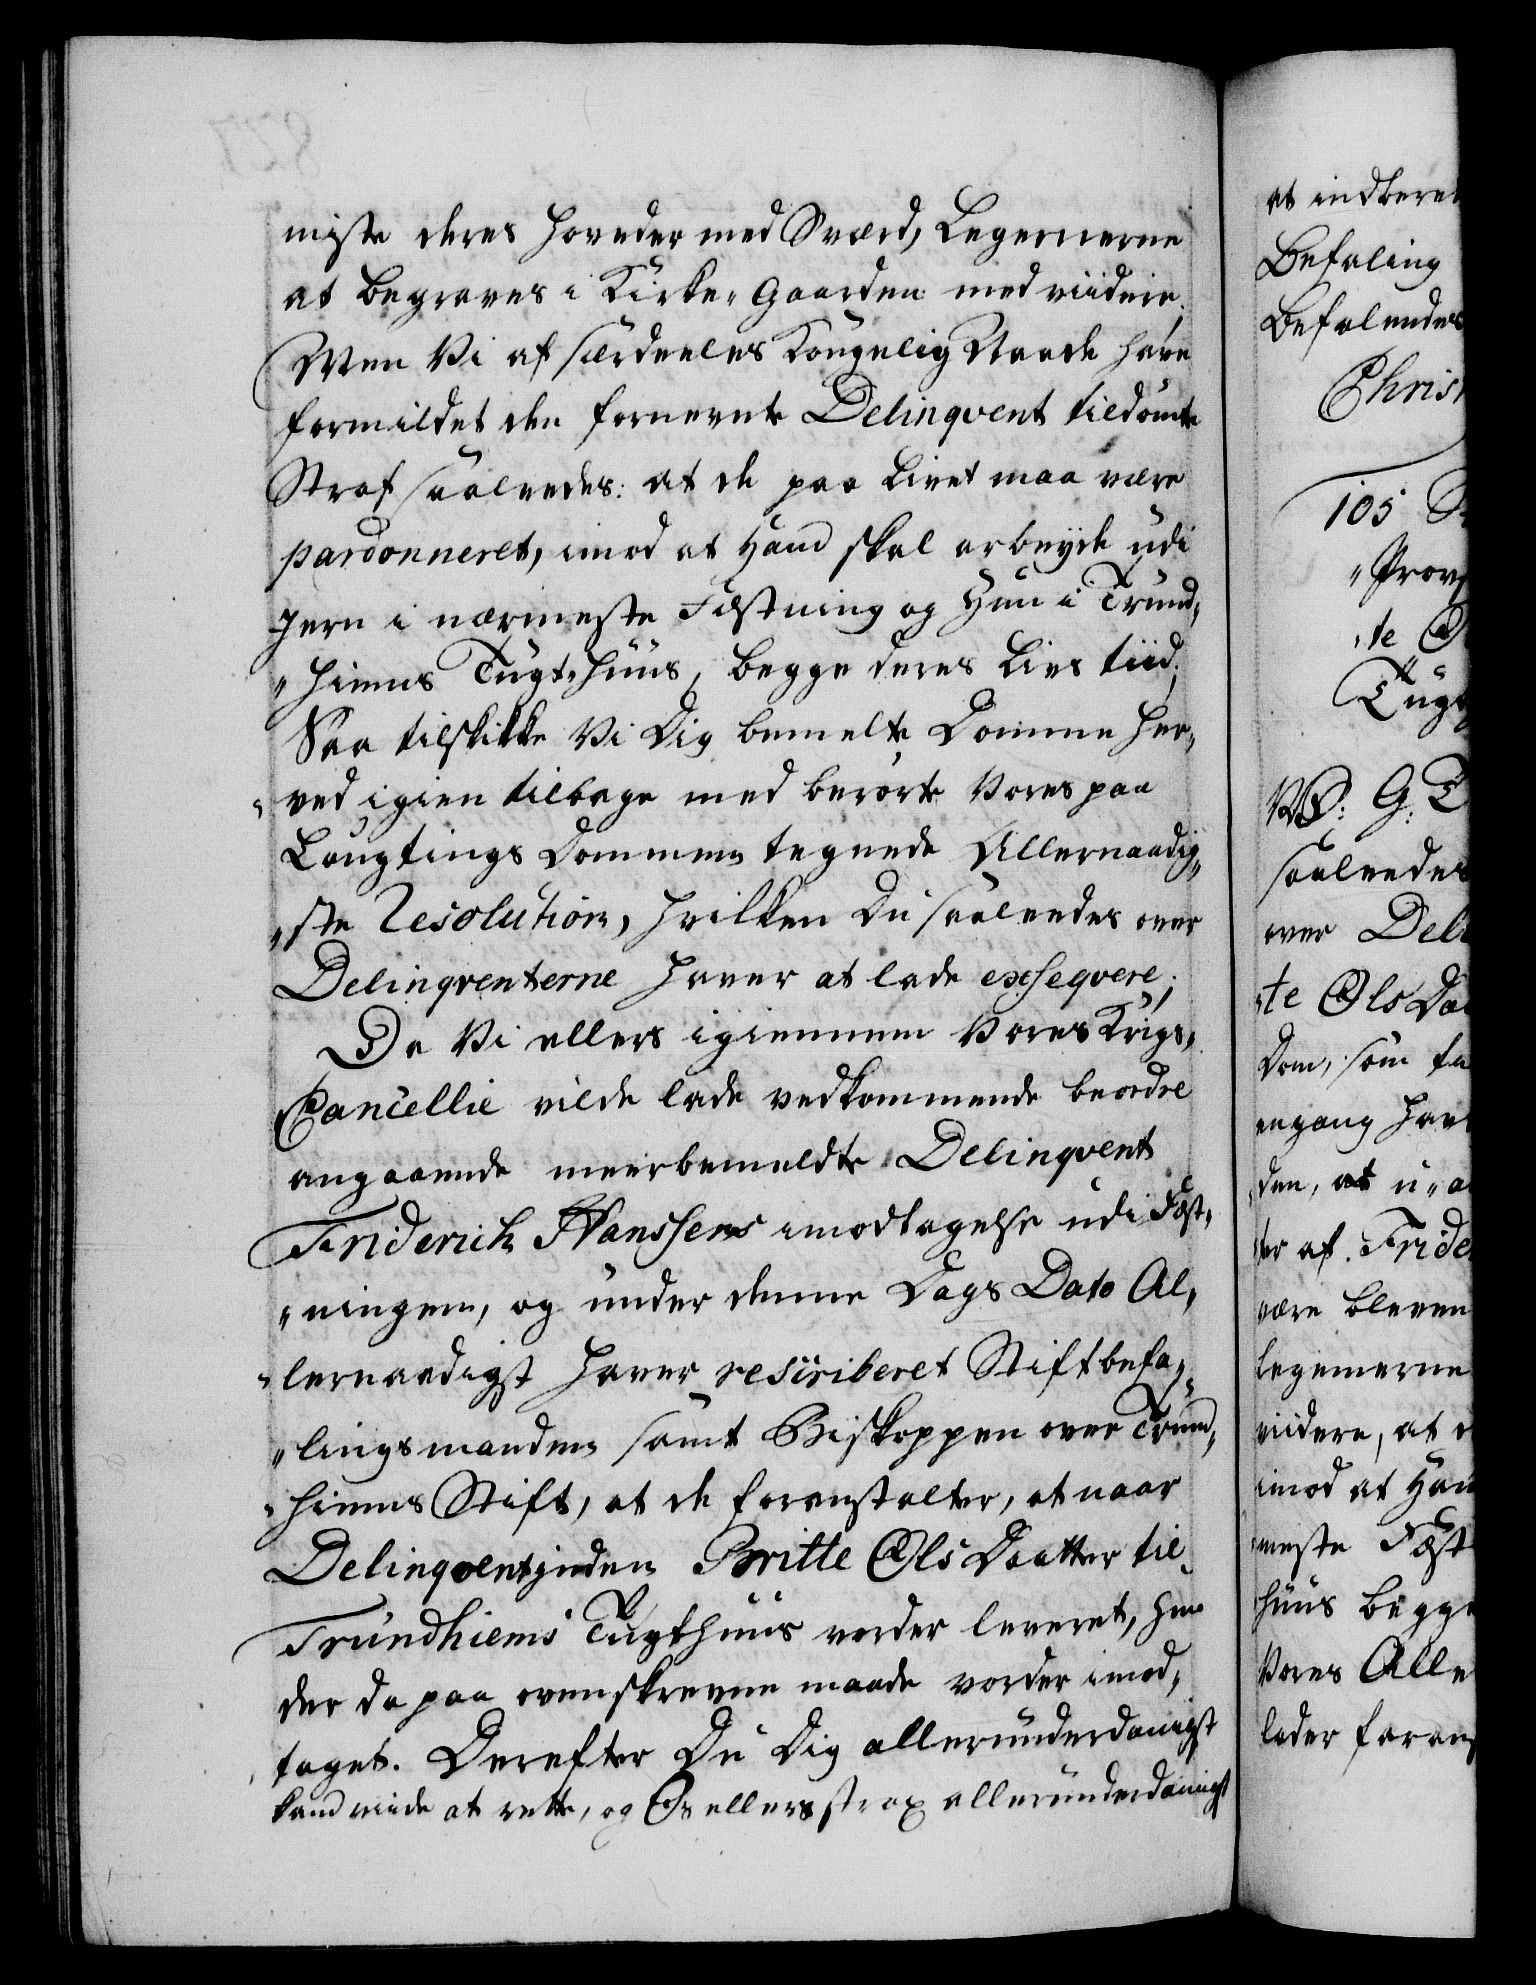 miste deres Hoveder med Sværd, Legemerne
at begraves i Kirke-Gaarden med viidere;
Men Vi af særdeeles Kongelig Naade have
formildet den fornevnte Delinqvent tildømte
Straf saaleedes: at de paa Livet maa være
pardonneret, imod at Hand skal arbeyde udi
Jern i nærmeste Fæstning og Hun i Trund,,
"hiems Tugt-huus, begge deres Livs tiid;
Saa tilskikke Vi Dig bemelte Domme her,,
"ved igien tilbage med berørte Vores paa
Laugtings Dommen tegnede Allernaadig,,
"ste Resolution, hvilken Du saaleedes over
Delinqventerne haver at lade exseqvere;
Da Vi ellers igiennem Vores Krigs,,
Cancellie vilde lade vedkommende beordre
angaaende meerbemeldte Delinqvent
Friderich Hanssens imodtagelse udi Fæst,,
"ningen, og under denne Dags Dato Al,,
"lernaadigst haver resiriberet Stiftbefa,,
"lingsmanden samt Biskoppen over Trund,,
"hiems Stift, at de foranstalter, at naar
Delinqventinden Britte Ols Daatter til
Trundhiems Tugthuus vorder leveret, hun
der da paa ovenskrevne maade vorder imod,,
taget. Derefter Du Dig allerunderdanigst
kand viide at rette, og Os ellers strax allerunderdanigst
827
at indberet
Befaling
Befalendes
Christ
105 S
"Prov
"te O
Tugt
V: G: T
saaleedes
over Deli
"te Ols Daa
Dom, som fa
engang hav
"den, at u-a
ter af Frider
være bleven
Legemerne
viidere, at d
imod at Han
meste Fæst
huus begge
Vores Alle
lader forans